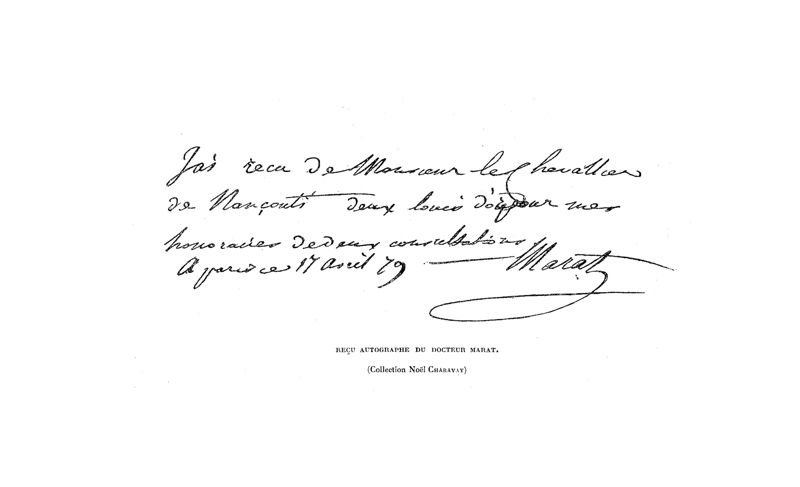 J'ai recu de Monsieur le Chevallier
de Nançouti deux louis d'or pour mes
honoraires de deux consultations
A paris ce 17 avril 79 Marat
REÇU AUTOGRAPHE DU DOCTEUR MARAT.
(Collection Noël CHARAVAY)